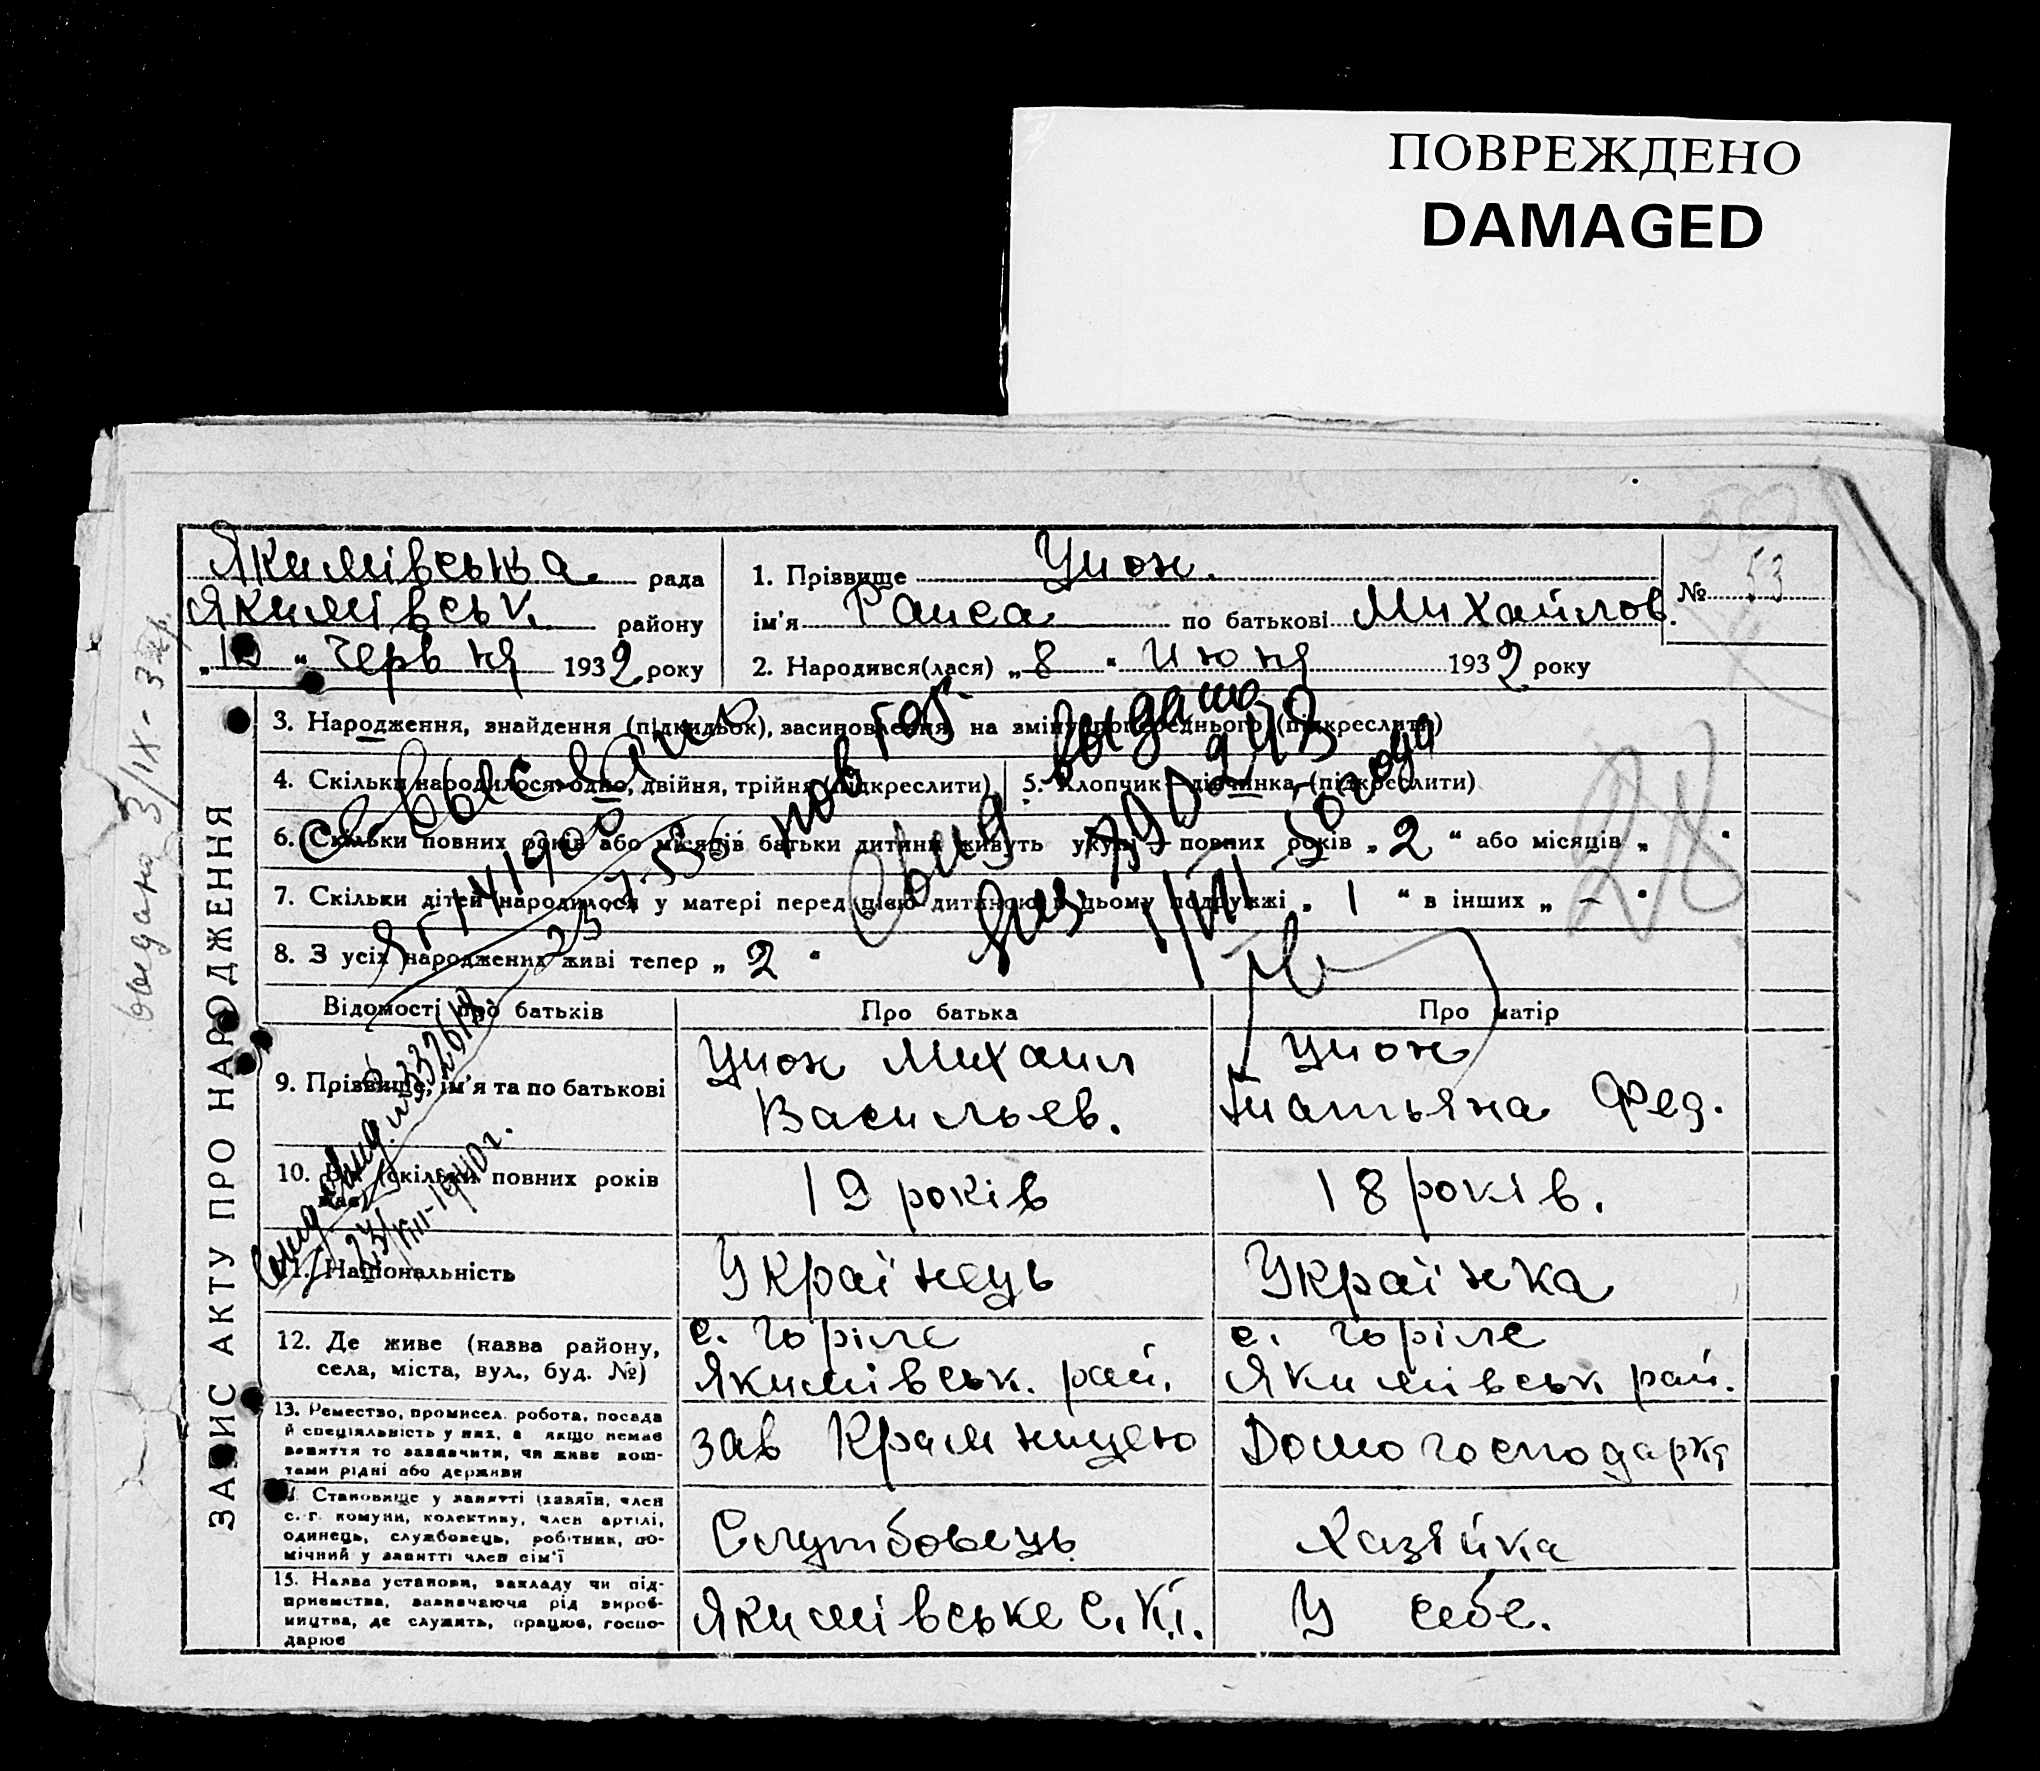 ПОВРЕЖДЕНО
DAMAGED
ЗАПИС АКТУ ПРО НАРОДЖЕННЯ
видано 3/IX - 3
Якимівська рада
Якимівськ. району
„10“ Червня 1932 року
1. Прізвище Уион.
ім'я Раиса по батькові Михайлов.
2. Народився(лася) „8“ Июня 1932 року
№ 53
3. Народження, знайдення (підкидьок), засиновлення на зміну попереднього (підкреслити)
4. Скільки народилося: одно, двійня, трійня (підкреслити)
5. Хлопчик - дівчинка (підкреслити)
6. Скільки повних років або місяців батьки дитини живуть укупі - повних років „2“ або місяців „
7. Скільки дітей народилося у матері перед цією дитиною в цьому подружжі „1“ в інших „-“
8. З усіх народжених живі тепер „2“
28
видано
23/VIII-1940 г.
Відомості про батьків
Про батька
Про матір
9. Прізвище, ім'я та по батькові
Уион Михаил
Васильев.
Уион
Татьяна Фед.
10. Вік (скільки повних років має)
19 років
18 років.
11. Національність
Українець
Українка
12. Де живе (назва району, села, міста, вул., буд. №)
с. Горіле
Якимівськ. рай.
с. Горіле
Якимівськ рай.
13. Ремество, промисел, робота, посада
й спеціальність у них, а якщо немає
заняття то зазначити, чи живе кош-
тами рідні або держави
зав Крамницею
Домогосподарка
14. Становище у занятті (хазяїн, член
с.-г. комуни, колективу, член артілі,
одинець, службовець, робітник, по-
мічний у занятті член сім'ї
Службовець
Хазяйка
15. Назва установи, закладу чи під-
приємства, зазначаючи рід вироб-
ництва, де служить, працює, госпо-
дарює
Якимівське С.К.Т.
У себе.